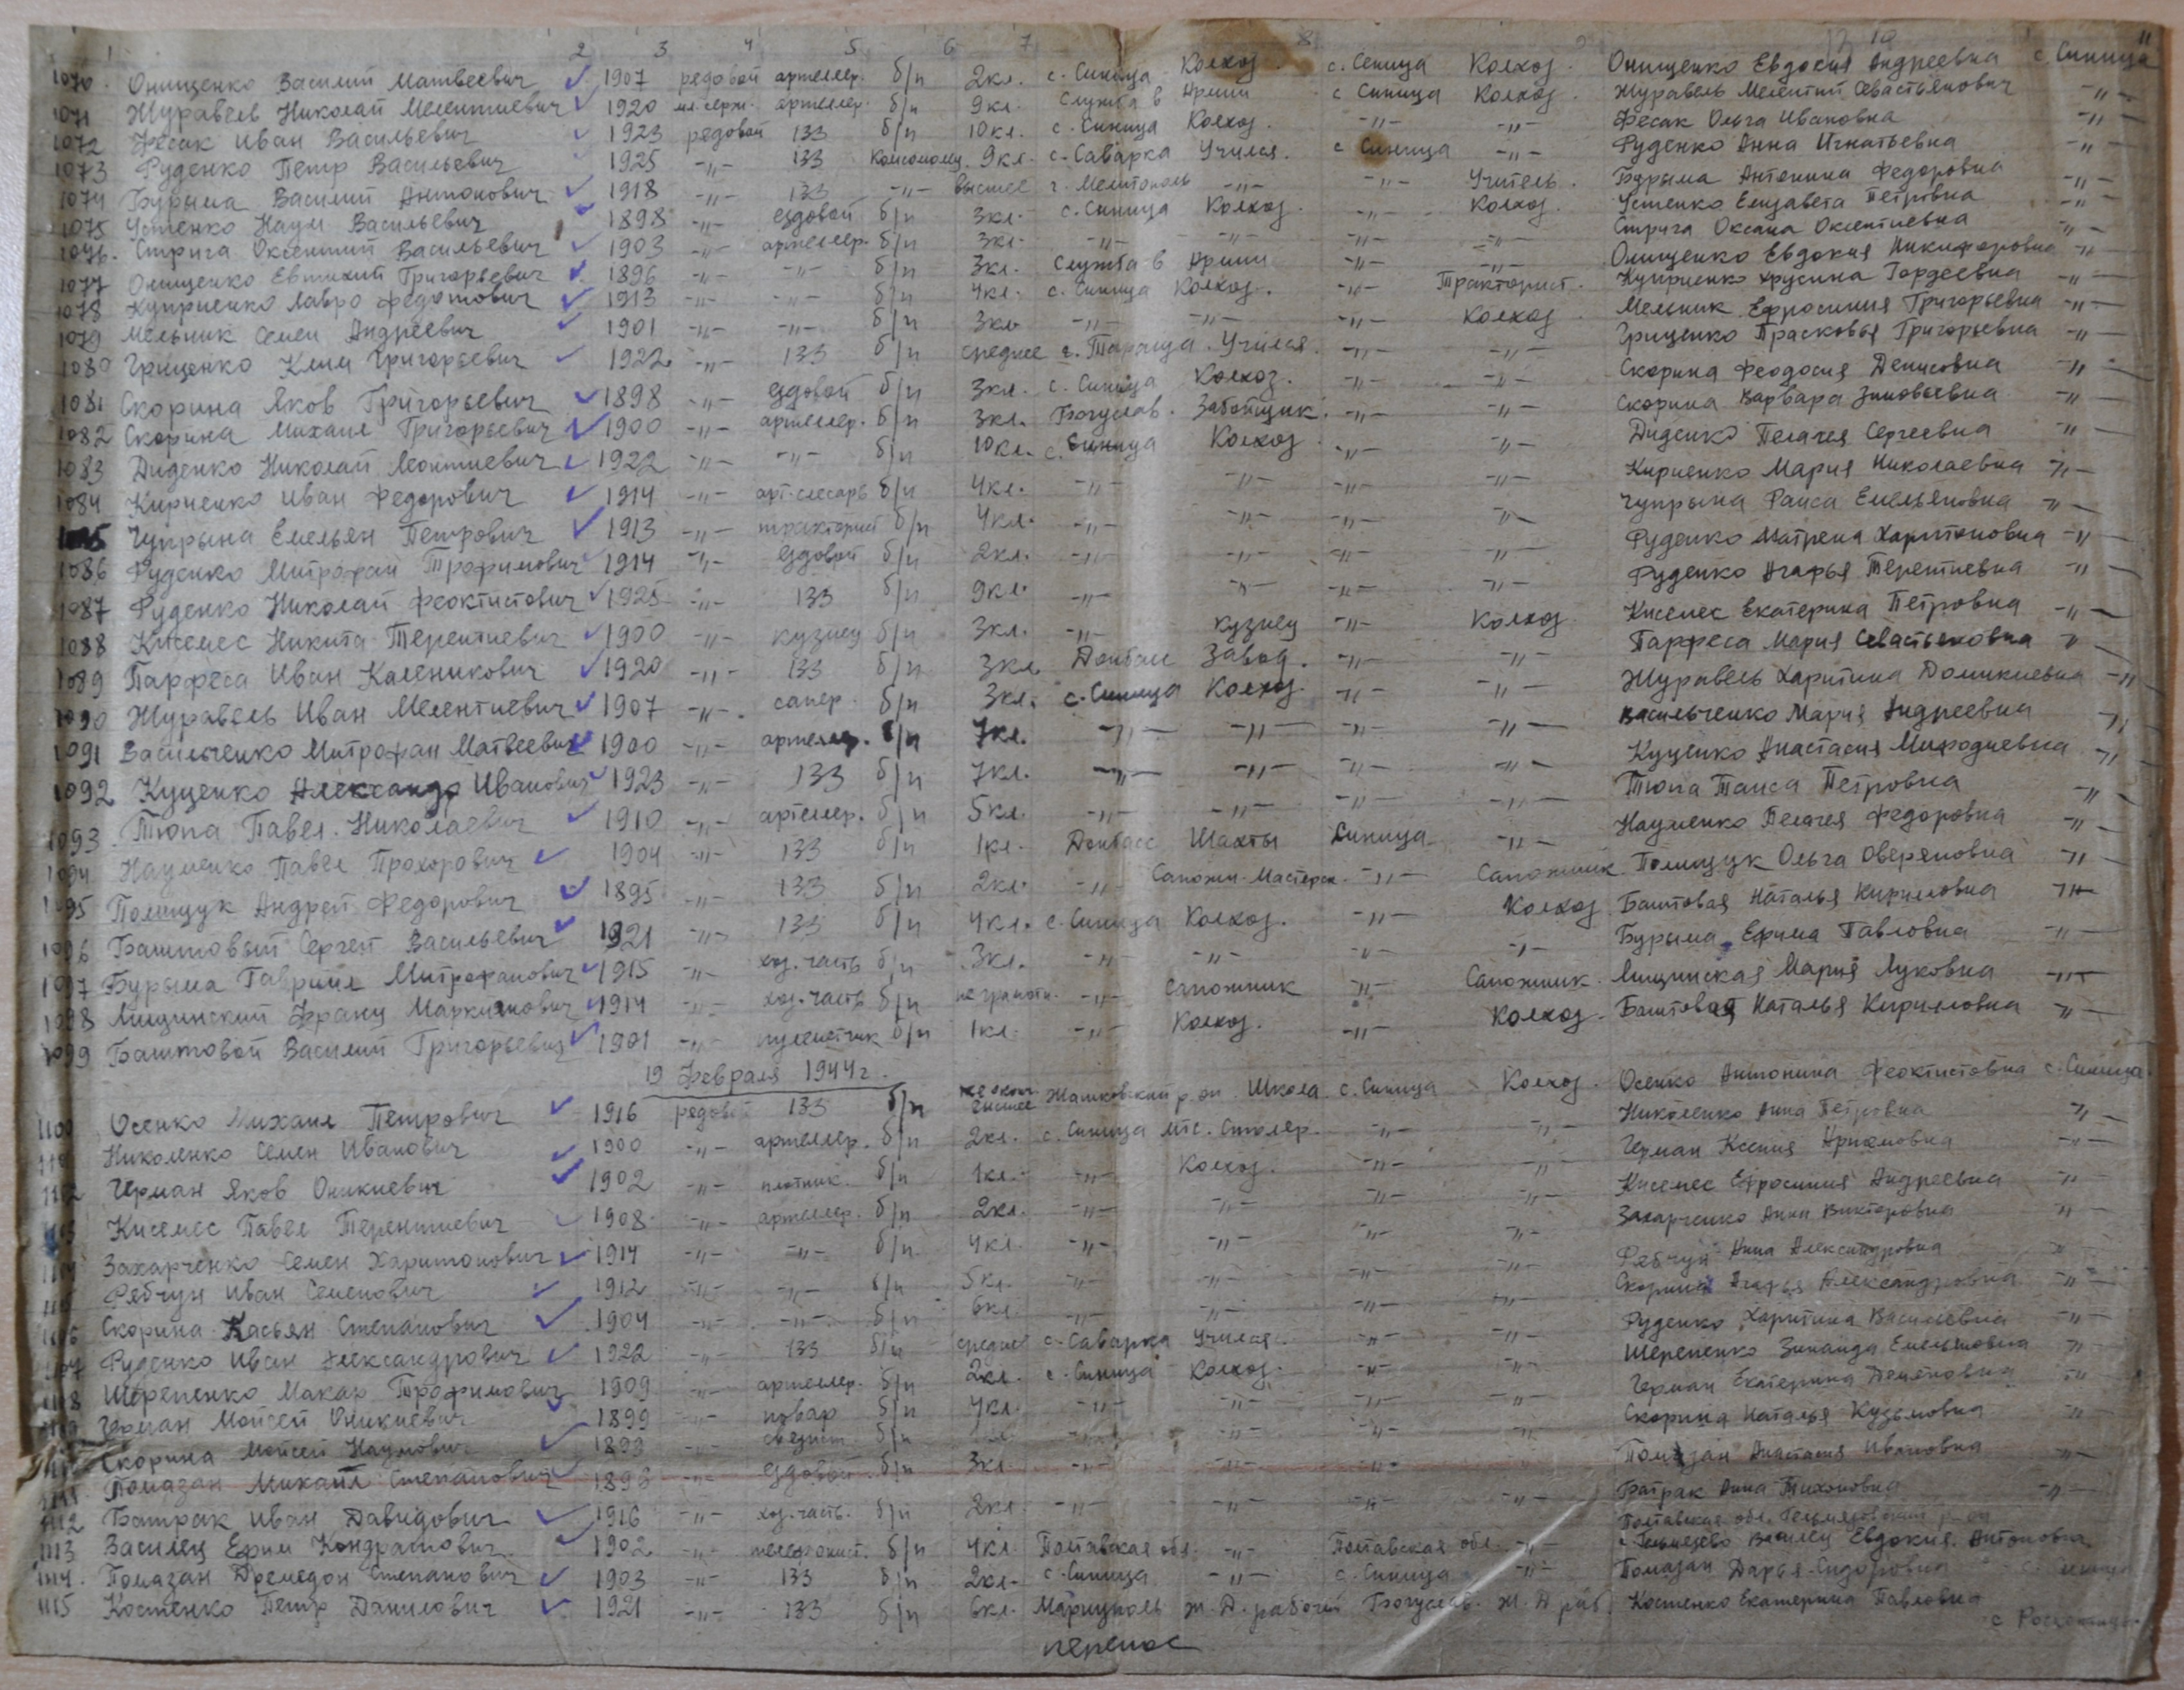 1 2 3 4 5 6 7 8 9 10 11
1070. Онищенко Василий Матвеевич 1907 редовой артеллер. б/п 2кл. с. Синица Колхоз. с. Сеница Колхоз. Онищенко Евдокия Андреевна с. Синица
1071 Журавель Николай Мелентиевич 1920 мл. серж. артеллер. б/п 9кл. Служба в Армии с Синица Колхоз. Журавель Мелентий Севастьянович -"-
1072 Фесак Иван Васильевич 1923 редовой 133 б/п 10кл. с. Синица Колхоз. -"- -"- Фесак Ольга Ивановна -"-
1073 Руденко Петр Васильевич 1925 -"- 133 Комсомолец 9кл. с. Саварка Учился. с Синица -"- Руденко Анна Игнатьевна -"-
1074 Бурыма Василий Антонович 1918 -"- 133 -"- высшее г. Мелитополь -"- -"- Учитель. Бурыма Антонина Федоровна -"-
1075 Устенко Наум Васильевич 1898 -"- ездовой б/п 3кл. с. Синица Колхоз. -"- Колхоз. Устенко Елизавета Петровна -"-
1076. Стрига Оксентий Васильевич 1903 -"- артеллер. б/п 3кл. -"- -"- -"- -"- Стрига Оксана Оксентиевна -"-
1077 Онищенко Евтихий Григорьевич 1896 -"- -"- б/п 3кл. Служба в Армии -"- -"- Онищенко Евдокия Никифоровна -"-
1078 Куприенко Лавро Федотович 1913 -"- -"- б/п 4кл. с. Синица Колхоз. -"- Тракторист. Куприенко Хрусина Гордеевна -"-
1079 Мельник Семен Андреевич 1901 -"- -"- б/п 3кл -"- -"- -"- Колхоз Мельник Ефросиния Григорьевна -"-
1080 Гриценко Клим Григорьевич 1922 -"- 133 б/п среднее г. Тараща. Учился. -"- -"- Гриценко Прасковья Григорьевна -"-
1081 Скорина Яков Григорьевич 1898 -"- ездовой б/п 3кл. с. Синица Колхоз. -"- -"- Скорина Феодосия Денисовна -"-
1082 Скорина Михаил Григорьевич 1900 -"- артеллер. б/п 3кл. Богуслав. Забойщик. -"- -"- Скорина Варвара Зиновьевна -"-
1083 Диденко Николай Леонтиевич 1922 -"- -"- б/п 10кл. с. Синица Колхоз -"- -"- Диденко Пелагея Сергеевна -"-
1084 Кириенко Иван Федорович 1914 -"- арт. слесарь б/п 4кл. -"- -"- -"- -"- Кириенко Мария Николаевна -"-
5 Чупрына Емельян Петрович 1913 -"- тракторист б/п 4кл. -"- -"- -"- -"- Чупрына Раиса Емельяновна -"-
1086 Руденко Митрофан Трофимович 1914 -"- ездовой б/п 2кл. -"- -"- -"- -"- Руденко Матрена Харитоновна -"-
1087 Руденко Николай Феоктистович 1925 -"- 133 б/п 9кл. -"- -"- -"- -"- Руденко Агафья Терентиевна -"-
1088 Киселес Никита Терентиевич 1900 -"- кузнец б/п 3кл. -"- кузнец -"- Колхоз Киселес Екатерина Петровна -"-
1089 Парфеса Иван Каленикович 1920 -"- 133 б/п 3кл Донбас Завод. -"- -"- Парфеса Мария Севастьяновна -"-
1090 Журавель Иван Мелентиевич 1907 -"- сапер. б/п 3кл. с. Синица Колхоз. -"- -"- Журавель Харитина Доминиевна -"-
1091 Васильченко Митрофан Матвеевич 1900 -"- артеллер. б/п 7кл. -"- -"- -"- -"- Васильченко Мария Андреевна -"-
1092 Куценко Александр Иванович 1923 -"- 133 б/п 7кл. -"- -"- -"- -"- Куценко Анастасия Мифодиевна -"-
1093 Тюпа Павел Николаевич 1910 -"- артеллер. б/п 5кл. -"- -"- -"- -"- Тюпа Таиса Петровна -"-
1094 Науменко Павел Прохорович 1904 -"- 133 б/п 1кл. Донбасс Шахты Синица -"- Науменко Пелагея Федоровна -"-
1095 Полищук Андрей Федорович 1895 -"- 133 б/п 2кл. -"- Сапожн. Мастерск. -"- Сапожник Полищук Ольга Оверяновна -"-
1096 Баштовый Сергей Васильевич 1921 -"- 133 б/п 4кл. с. Синица Колхоз. -"- Колхоз Баштовая Наталья Кириловна -"-
1097 Бурыма Гавриил Митрофанович 1915 -"- хоз. часть б/п 3кл. -"- -"- -"- -"- Бурыма Ефима Павловна -"-
1098 Лищинский Франц Маркиянович 1914 -"- хоз. часть б/п не грамотн. -"- Сапожник -"- Сапожник. Лищинская Мария Луковна -"-
1099 Баштовой Василий Григорьевич 1901 -"- пулеметчик б/п 1кл. -"- Колхоз. -"- Колхоз. Баштовая Наталья Кириловна -"-
19 Февраля 1944г.
1100 Осенко Михаил Петрович 1916 редовой 133 б/п не оконч. высшее Жашковский р-он Школа с. Синица Колхоз. Осенко Антонина Феоктистовна с. Синица.
1101 Николенко Семен Иванович 1900 -"- артеллер. б/п 2кл. с. Синица МТС. Столяр. -"- -"- Николенко Анна Петровна -"-
1102 Герман Яков Оникиевич 1902 -"- плотник. б/п 1кл. -"- Колхоз. -"- -"- Герман Ксения Артемовна -"-
1103 Киселес Павел Терентиевич 1908 -"- артеллер. б/п 2кл. -"- -"- -"- -"- Киселес Ефросиния Андреевна -"-
1104 Захарченко Семен Харитонович 1914 -"- -"- б/п 4кл. -"- -"- -"- -"- Захарченко Анна Викторовна -"-
1105 Рябчун Иван Семенович 1912 -"- -"- б/п 5кл. -"- -"- -"- -"- Рябчун Анна Александровна -"-
1106 Скорина Касьян Степанович 1904 -"- -"- б/п 6кл. -"- -"- -"- -"- Скорина Агафья Александровна -"-
1107 Руденко Иван Александрович 1922 -"- 133 б/п среднее с. Саварка Учился. -"- -"- Руденко Харитина Васильевна -"-
1108 Шерепенко Макар Трофимович 1909 -"- артеллер. б/п 2кл. с. Синица Колхоз. -"- -"- Шерепенко Зинаида Емельяновна -"-
1109 Герман Мойсей Оникиевич 1899 -"- повар б/п 4кл. -"- -"- -"- -"- Герман Екатерина Демяновна -"-
1110 Скорина Мойсей Наумович 1899 -"- б/п -"- -"- -"- -"- Скорина Наталья Кузьмовна -"-
1111. Помазан Михаил Степанович 1896 -"- ездовой б/п 3кл -"- -"- -"- -"- Помазан Анастасия Ивановна -"-
1112 Батрак Иван Давидович 1916 -"- хоз. часть. б/п 2кл. -"- -"- -"- -"- Батрак Анна Тихоновна -"-
Полтавская обл.
1113 Василец Ефим Кондратович 1902 -"- телефонист. б/п 4кл Полтавская обл. -"- Полтавская обл. -"- Василец Евдокия Антоновна
1114. Помазан Дремедон Степанович 1903 -"- 133 б/п 2кл. с. Синица -"- с. Синица -"- Помазан Дарья Сидоровна с. Синица
1115 Костенко Петр Данилович 1921 -"- 133 б/п 6кл. Мариуполь Ж.Д. рабочий Богуслав. Ж.Д раб. Костенко Екатерина Павловна
перенос